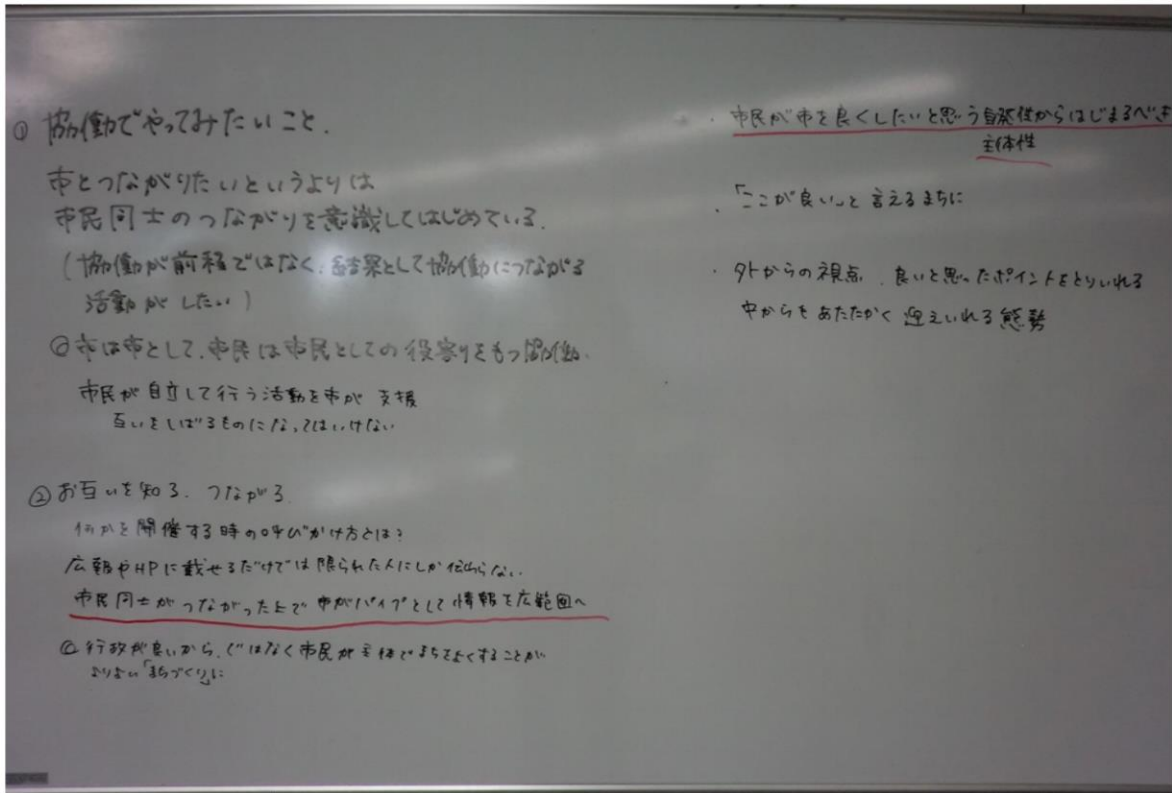 ① 協働でやってみたいこと.
市とつながりたいというよりは
市民同士のつながりを意識してはじめている.
(協働が前程ではなく.結果として協働につながる
活動がしたい)
◎市は市として.市民は市民としての役割りをもつ協働.
市民が自立して行う活動を市が 支援
互いをしばるものになってはいけない
② お互いを知る. つながる.
何かを開催する時の呼びかけ方とは?
広報やHPに載せるだけでは限られた人にしか伝わらない.
市民同士がつながった上で市がパイプとして情報を広範囲へ
◎行政が良いから.ではなく市民が主体でまちをよくすることが
よりよい「まちづくり」に
・市民が市を良くしたいと思う自発性からはじまるべき
主体性
・「ここが良い」と言えるまちに
・外からの視点. 良いと思ったポイントをとりいれる
中からもあたたかく迎えいれる態勢